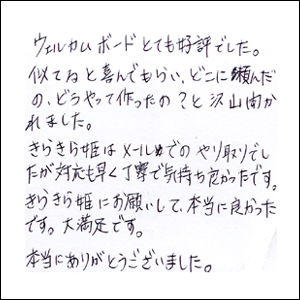 ウェルカムボードとても好評でした。
似てねと喜んでもらい、どこに頼んだ
の、どうやって作ったの?と沢山聞か
れました。
きらきら姫はメールでのやり取りでし
たが対応も早く丁寧で気持ち良かったです。
きらきら姫にお願いして、本当に良かった
です。大満足です。
本当にありがとうございました。